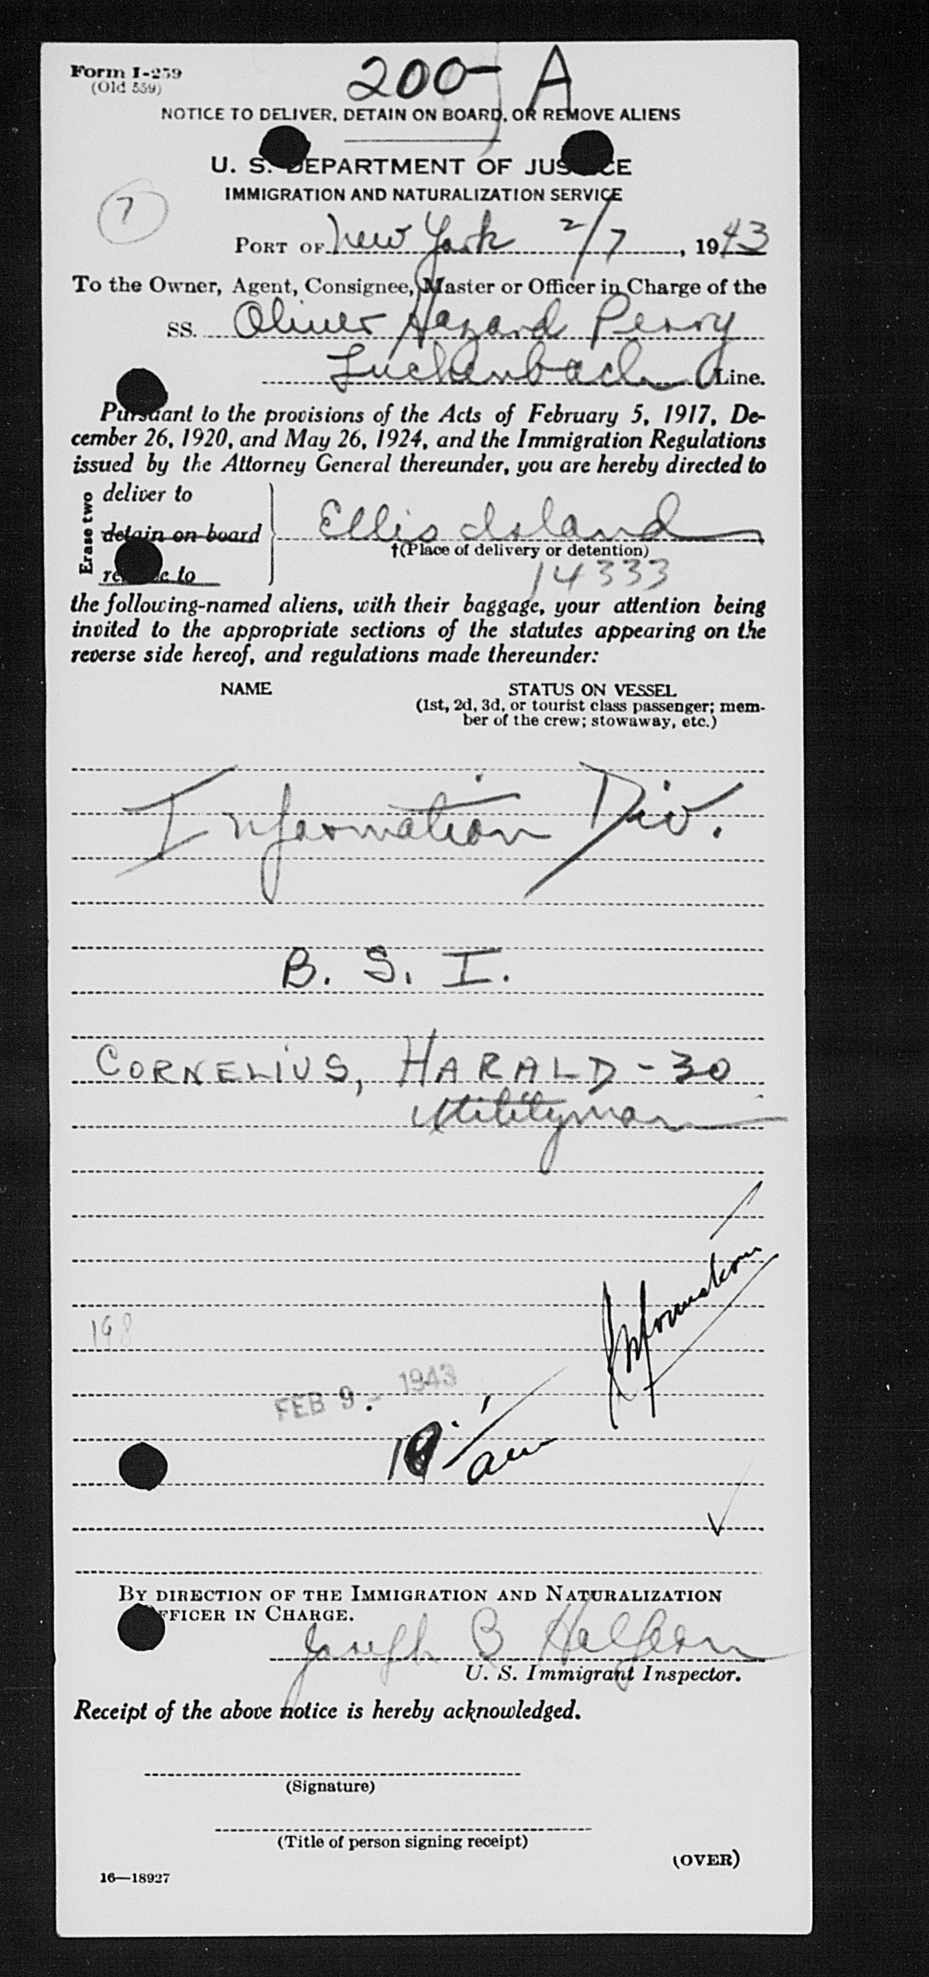 Form I-259
(Old 559)
200-A
NOTICE TO DELIVER, DETAIN ON BOARD, OR REMOVE ALIENS
U. S. DEPARTMENT OF JUSTICE
IMMIGRATION AND NATURALIZATION SERVICE
7
PORT OF New York 2/7, 1943
To the Owner, Agent, Consignee, Master or Officer in Charge of the
SS. Oliver Hazard Perry
Luckenbach Line.
Pursuant to the provisions of the Acts of February 5, 1917, De-
cember 26, 1920, and May 26, 1924, and the Immigration Regulations
issued by the Attorney General thereunder, you are hereby directed to
Erase two
deliver to
detain on board
remove to
Ellis Island
†(Place of delivery or detention)
14333
the following-named aliens, with their baggage, your attention being
invited to the appropriate sections of the statutes appearing on the
reverse side hereof, and regulations made thereunder:
NAME STATUS ON VESSEL
(1st, 2d, 3d, or tourist class passenger; mem-
ber of the crew; stowaway, etc.)
Information Div.
B. S. I.
CORNELIUS, HARALD - 30
utilityman
Information
198
FEB 9 - 1943
am
BY DIRECTION OF THE IMMIGRATION AND NATURALIZATION
OFFICER IN CHARGE.
Joseph B
U. S. Immigrant Inspector.
Receipt of the above notice is hereby acknowledged.
(Signature)
(Title of person signing receipt)
(OVER)
16—18927